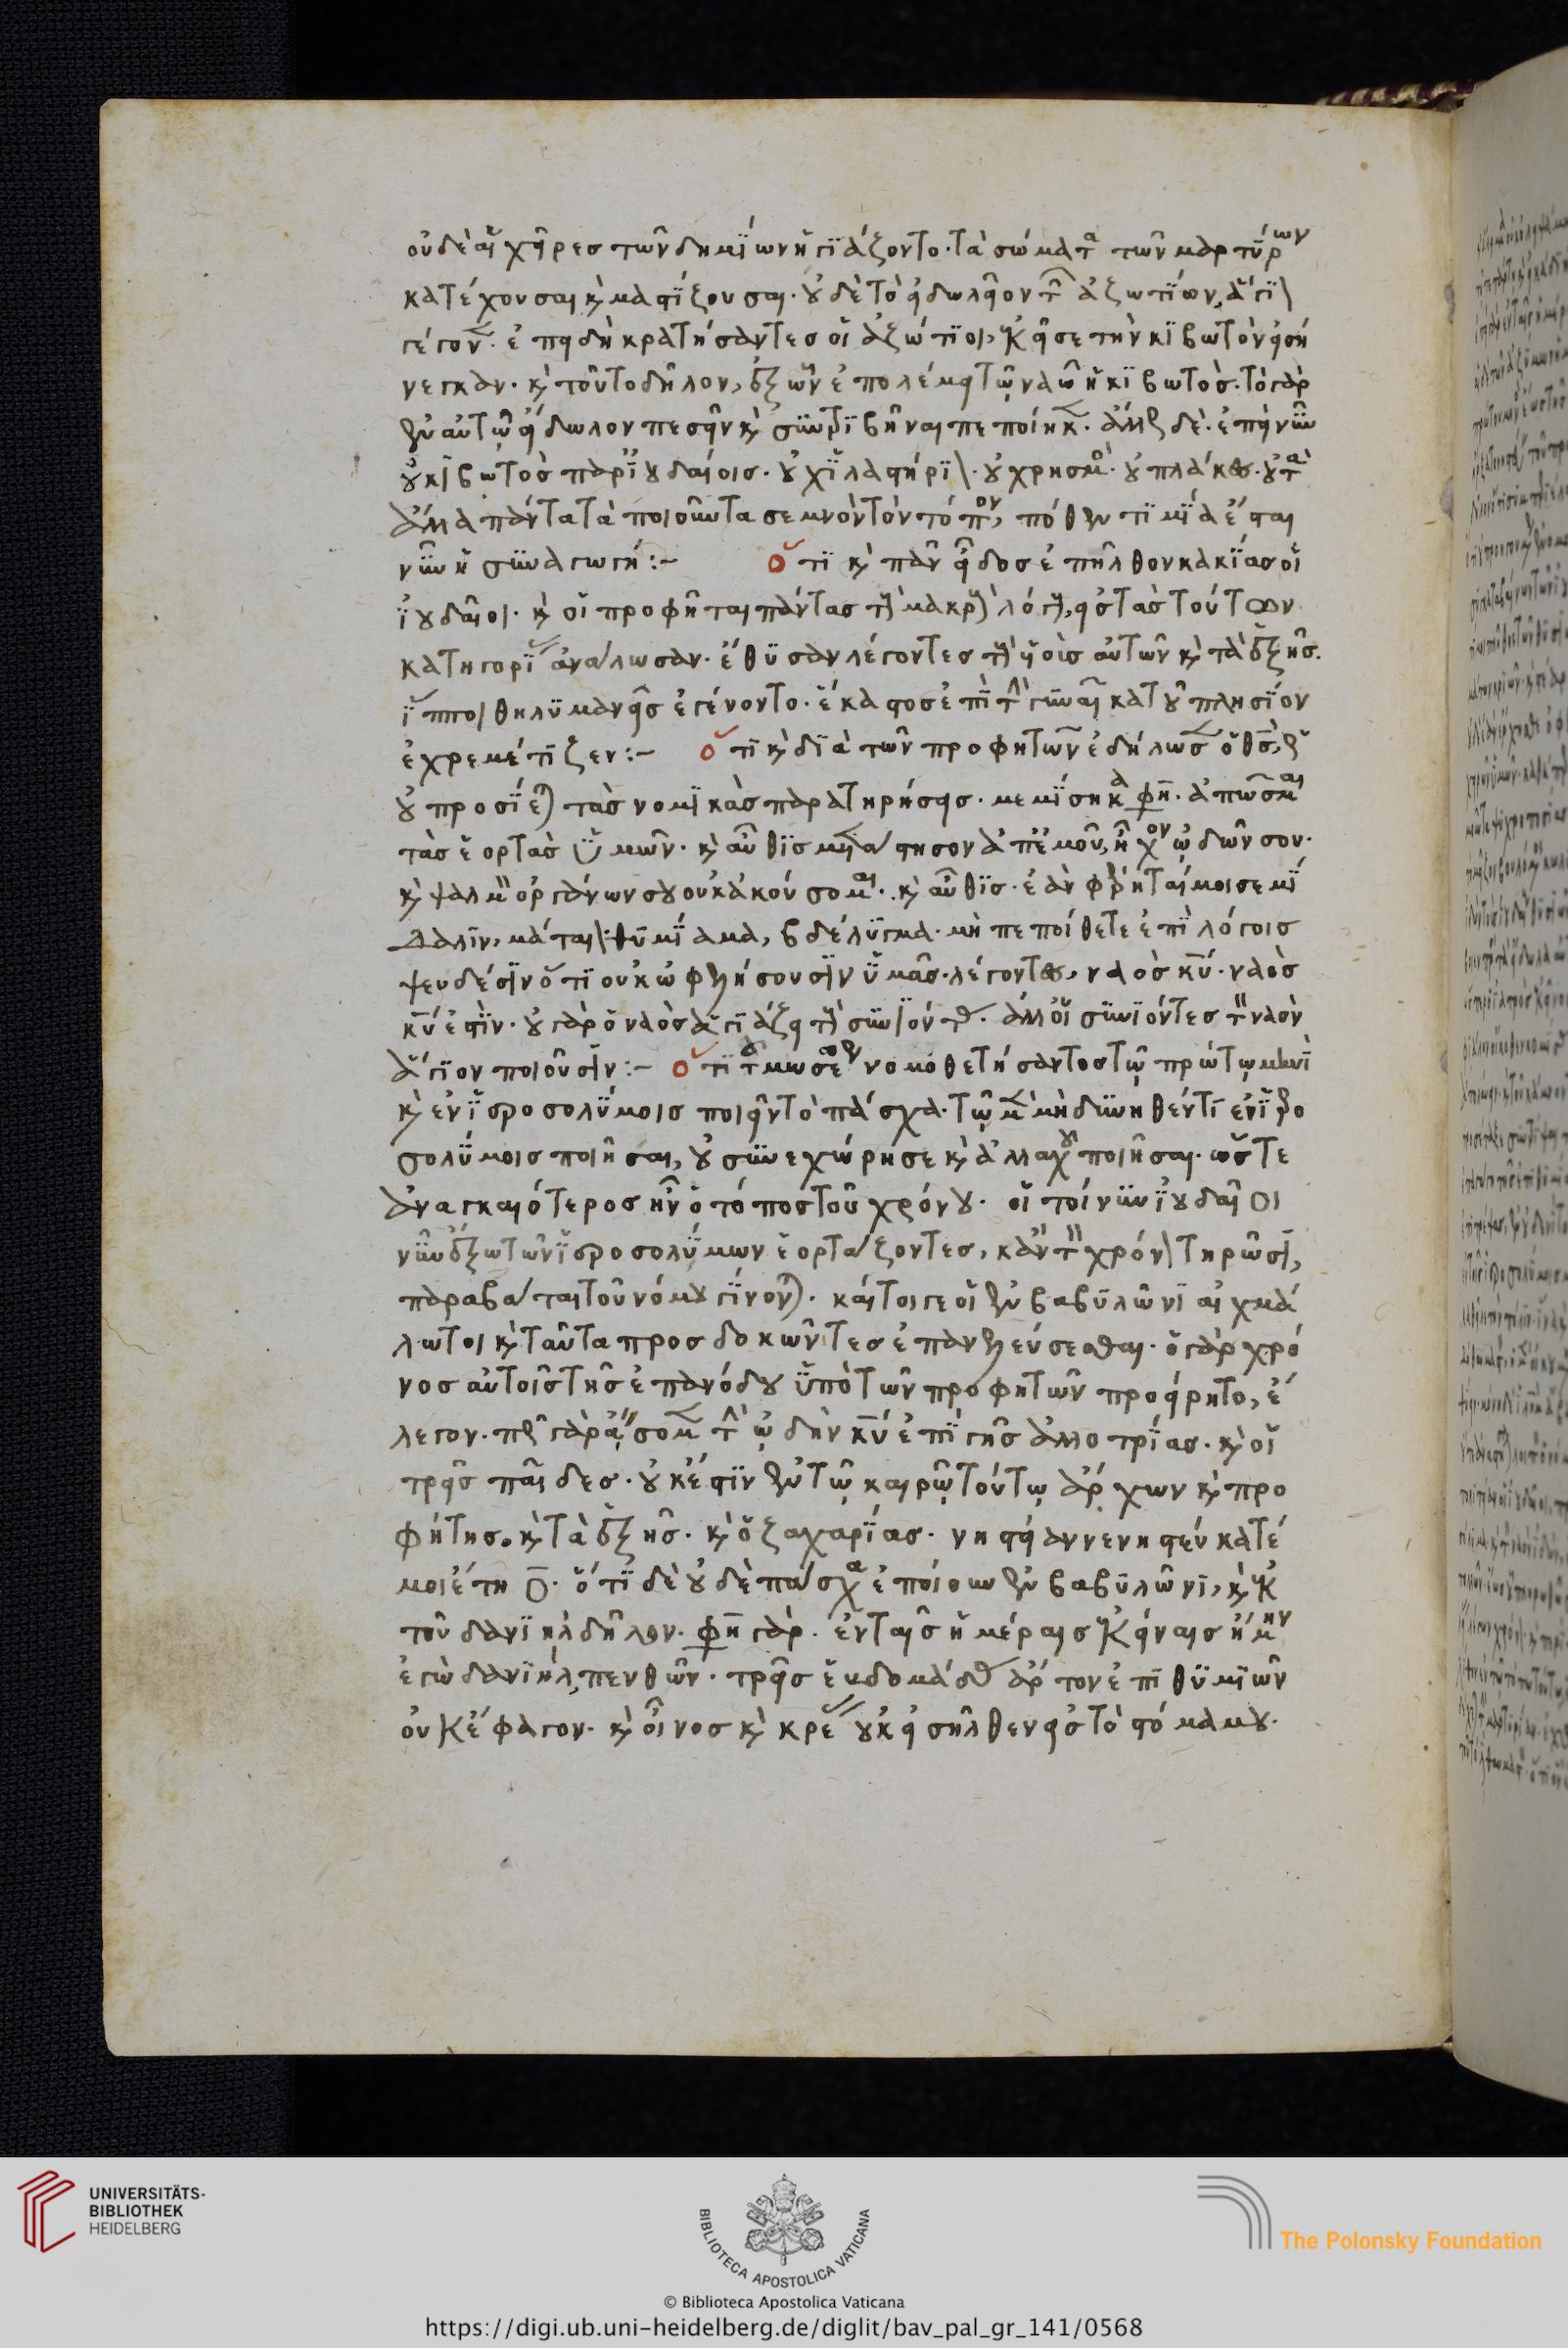 οὐδὲ αἱ χεῖρες τῶν δημίων ἡγιάζοντο· τὰ σώματα τῶν μαρτύρων
κατέχουσαι καὶ μαστίζουσαι· οὐδὲ τὸ εἰδωλεῖον τῶν ἀζωτίων, ἅγιον
γέγονεν· ἐπειδὴ κρατήσαντες οἱ ἀζώτιοι, ἐκεῖσε τὴν κιβωτὸν εἰσή
νεγκαν· καὶ τοῦτο δῆλον, ἐξ ὧν ἐπολέμει τῷ ναῷ ἡ κιβωτός· τὸ γὰρ
ἐν αὐτῷ εἴδωλον πεσεῖν καὶ συντριβῆναι πεποίηκεν· ἄλλως δὲ· ἐπεὶ νῦν
οὐ κιβωτὸς παρ ἰουδαίοις· οὐχ ἱλαστήριον· οὐ χρησμὸς· οὐ πλάκες· οὐ τὰ
ἄλλα πάντα τὰ ποιοῦντα σεμνὸν τὸν τόπον, πόθεν τιμία ἔσται
νῦν ἡ συναγωγή:~ ὅτι καὶ πᾶν εἶδος ἐπῆλθον κακίας οἱ
ἰουδαῖοι· καὶ οἱ προφῆται πάντας τοὺς μακροὺς λόγους, εἰς τὰς τούτων
κατηγορίας ἀνάλωσαν· ἔθυσαν λέγοντες τοὺς υἱοὺς αὐτῶν καὶ τὰ ἐξῆς.
ἵπποι θηλυμανεῖς ἐγένοντο· ἕκαστος ἐπὶ τὴν γυναῖκα τοῦ πλησίον
ἐχρεμέτιζεν:~ ὅτι καὶ διὰ τῶν προφητῶν ἐδήλωσεν ὁ θς, ὡς
οὐ προσίεται τὰς νομικὰς παρατηρήσεις· μεμίσηκα φη· ἀπῶσμαι
τὰς ἑορτὰς ὑμῶν· καὶ αὖθις μετάστησον ἀπ ἐμοῦ, ἦχον ᾠδῶν σου·
καὶ ψαλμὸν ὀργάνων σου οὐκ ἀκούσομαι· καὶ αὖθις· ἐὰν φέρηταί μοι σεμί
δαλιν, μάταιον· θυμίαμα, βδέλυγμα· μὴ πεποίθετε ἐπὶ λόγοις
ψευδέσιν ὅτι οὐκ ὠφελήσουσιν ὑμᾶς· λέγοντες, ναὸς κυ· ναὸς
κυ ἐστὶν· οὐ γὰρ ὁ ναὸς ἁγιάζει τοὺς συνιόντας· ἀλλ οἱ συνιόντες τὸν ναὸν
ἅγιον ποιοῦσιν:~ ὅτι τοῦ μωσέως νομοθετήσαντος τῷ πρώτῳ μηνὶ
καὶ ἐν ἱεροσολύμοις ποιεῖν τὸ πάσχα· τῷ μὲν μὴ δυνηθέντι ἐν ἱερο
σολύμοις ποιῆσαι, οὐ συνεχώρησε καὶ ἀλλαχοῦ ποιῆσαι· ὥστε
ἀναγκαιότερος ἦν ὁ τόπος τοῦ χρόνου· οἱ τοίνυν ἰουδαῖοι
νῦν ἔξω τῶν ἱεροσολύμων ἑορτάζοντες, κἂν τὸν χρόνον τηρῶσιν,
παραβάται τοῦ νόμου γίνονται· καίτοιγε οἱ ἐν βαβυλῶνι αἰχμά
λωτοι καὶ ταῦτα προσδοκῶντες ἐπανελεύσεσθαι· ὁ γὰρ χρό
νος αὐτοῖς τῆς ἐπανόδου ὑπὸ τῶν προφητῶν προείρητο, ἔ
λεγον· πῶς γὰρ ᾄσομεν τὴν ᾠδὴν κυ ἐπὶ γῆς ἀλλοτρίας· καὶ οἱ
τρεῖς παῖδες· οὐκ ἔστιν ἐν τῷ καιρῷ τούτῳ ἄρχων καὶ προ
φήτης· καὶ τὰ ἐξῆς· καὶ ὁ ζαχαρίας· νηστείαν νενηστεύκατέ
μοι ἔτη ο· ὅτι δὲ οὐδὲ πάσχα ἐποίουν ἐν βαβυλῶνι, καὶ ἐκ
τοῦ δανιὴλ δῆλον· φη γάρ· ἐν ταῖς ἡμέραις ἐκείναις ἤμην
ἐγὼ δανιὴλ, πενθῶν· τρεῖς ἑβδομάδας ἄρτον ἐπιθυμιῶν
οὐκ ἔφαγον· καὶ οἶνος καὶ κρέας οὐκ εἰσῆλθεν εἰς τὸ στόμα μου·
UNIVERSITÄTS-
BIBLIOTHEK
HEIDELBERG
BIBLIOTECA APOSTOLICA VATICANA
The Polonsky Foundation
© Biblioteca Apostolica Vaticana
https://digi.ub.uni-heidelberg.de/diglit/bav_pal_gr_141/0568